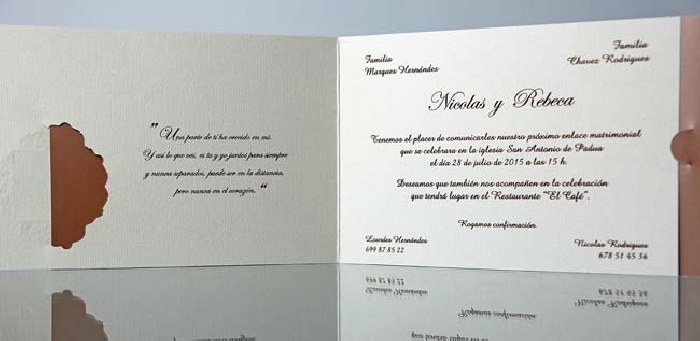 " Una parte de ti ha crecido en mi.
Y así do que veí, ni tu y yo juntos para siempre
y nunca separados, puede ser en la distancia,
pero nunca en el corazón. "
Familia
Marques Hernández
Familia
Chavez Rodrigues
Nicolas y Rebeca
Tenemos el placer de comunicarles nuestro próximo enlace matrimonial
que se celebrara en la iglesia San Antonio de Padua
el día 28 de julio de 2015 a las 15 h.
Deseamos que también nos acompañen en la celebración
que tendrá lugar en el Restaurante "El Café".
Rogamos confirmación
Lourdes Hernández
699 87 85 22
Nicolas Rodrigues
678 51 45 36